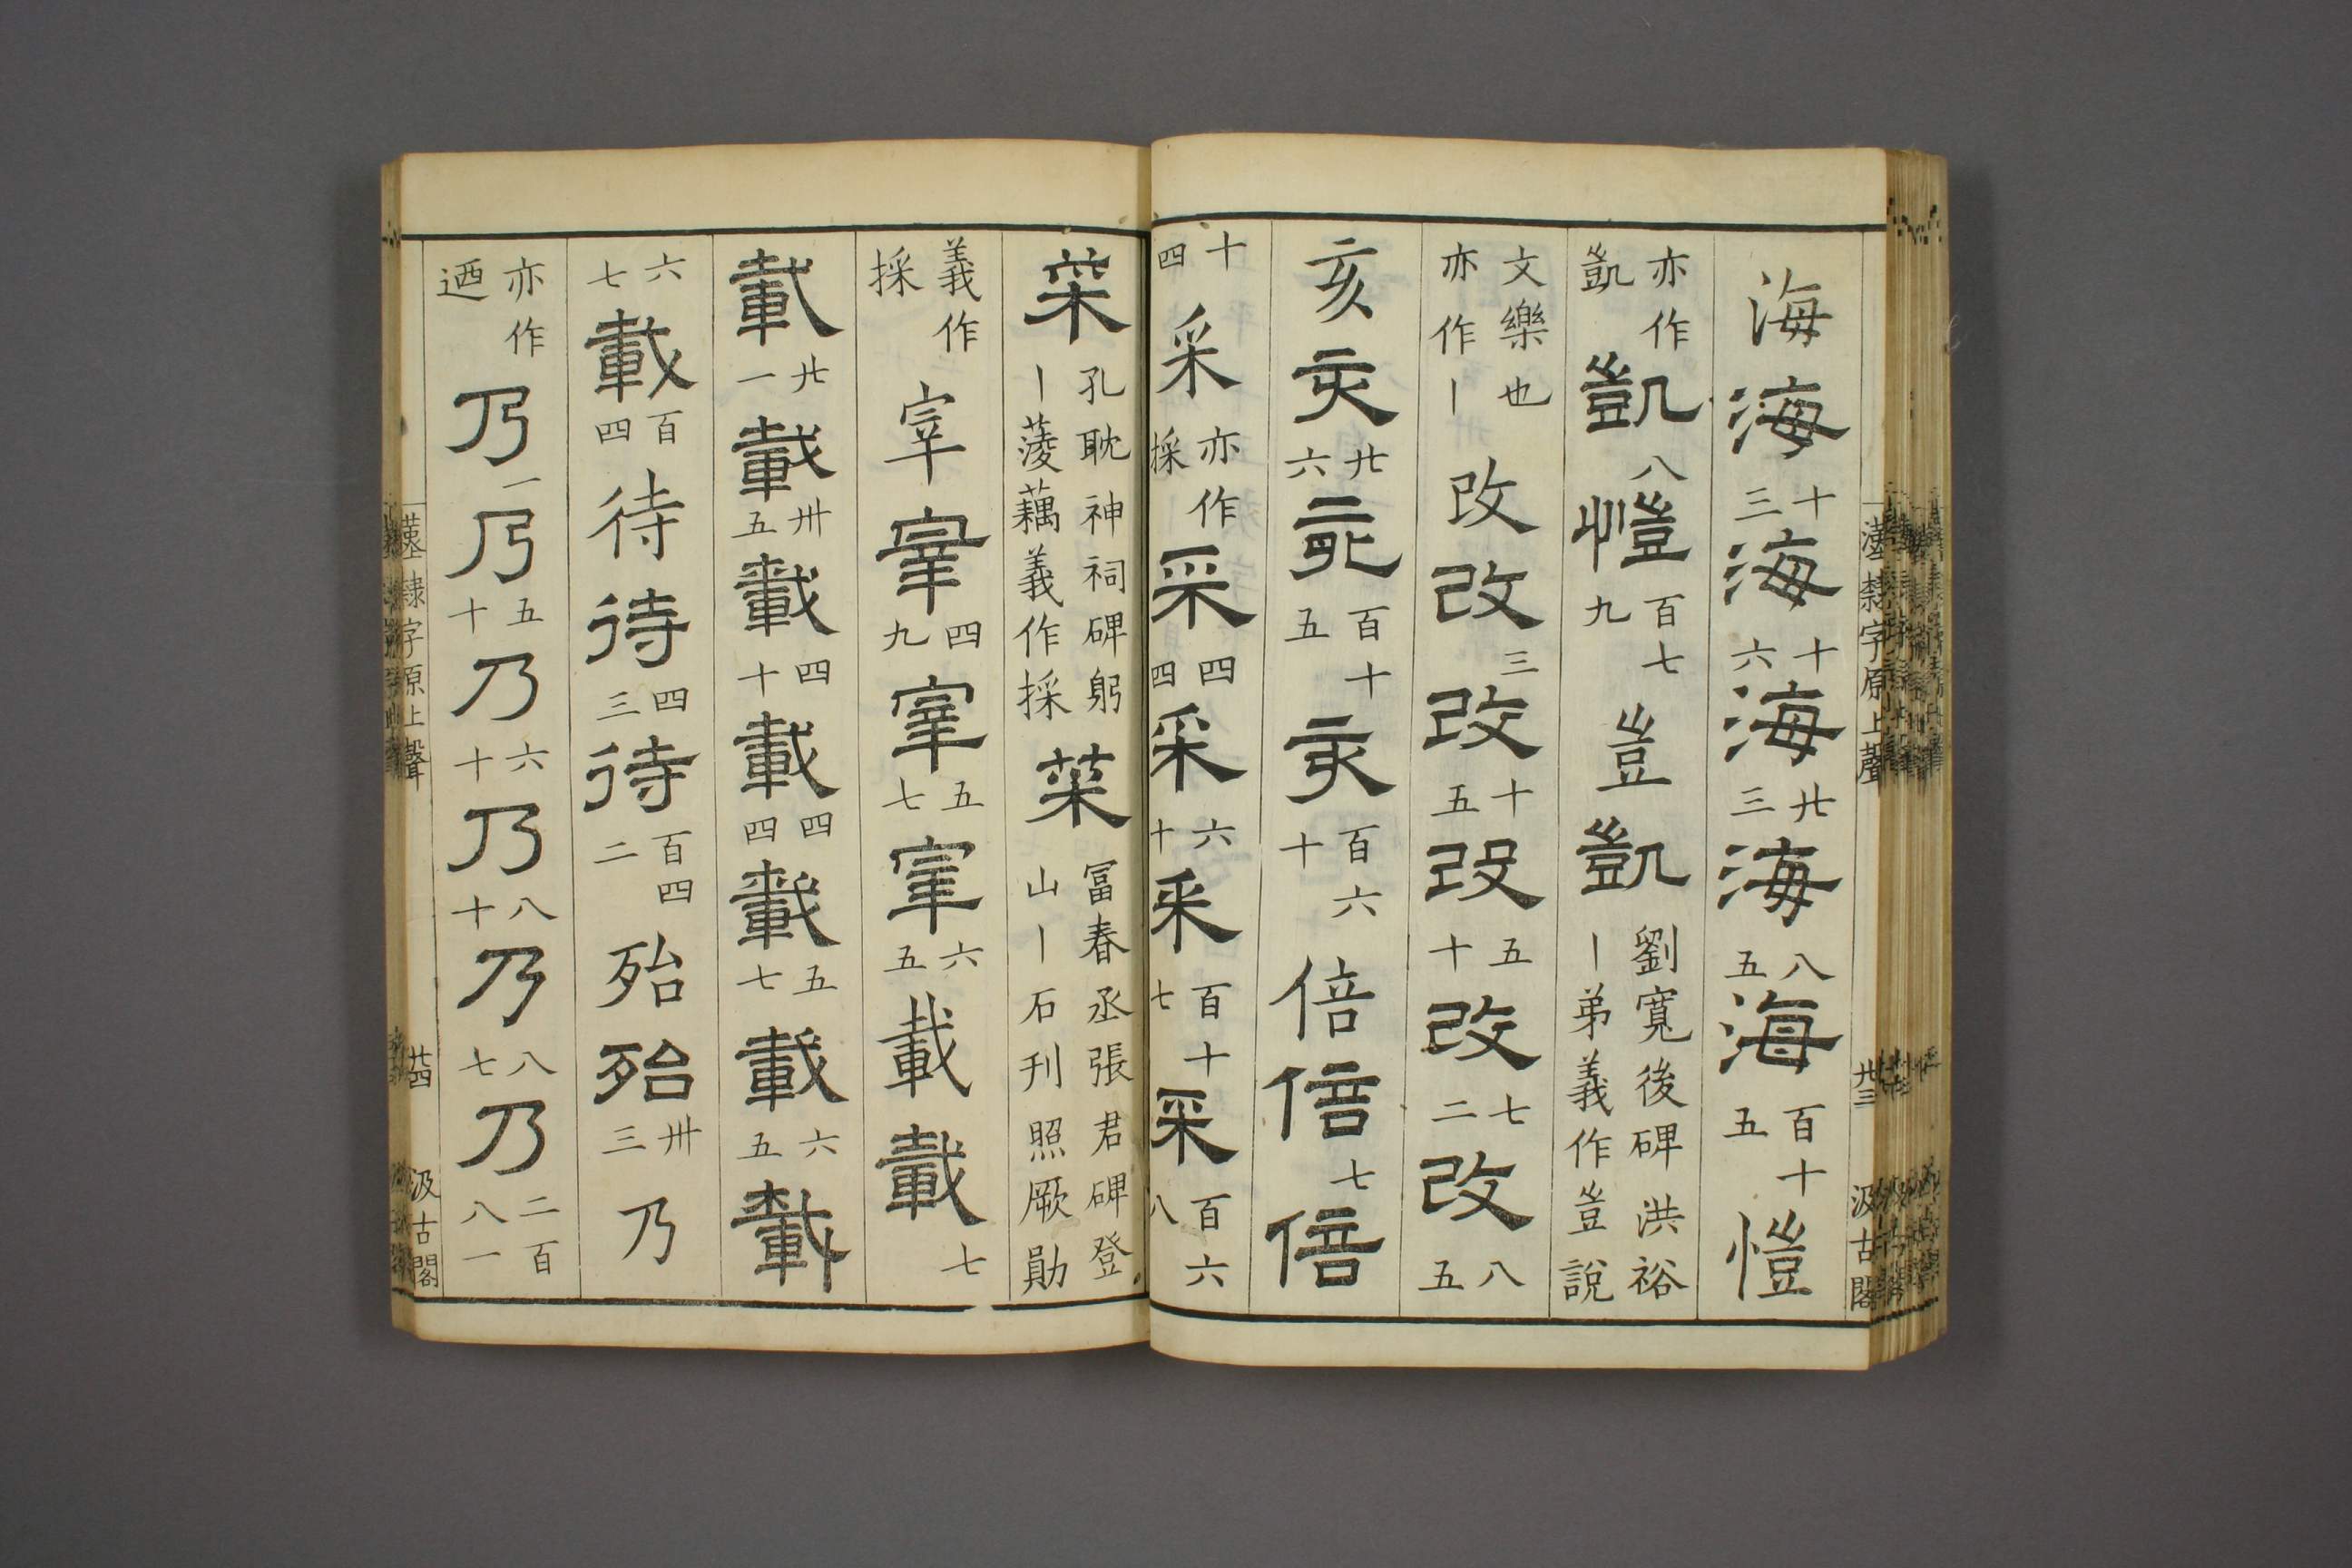 漢隸字原上聲 廿三 汲古閣
海 海 十三 海 十六 海 廿三 海 八五 海 百十五 愷
亦作凱 凱 八 愷 百七九 豈 凱 劉寬後碑洪裕丨弟義作豈說
文樂也亦作丨 改 改 三 改 十五 改 五十 改 七二 改 八五
亥 亥 廿六 亥 百十五 亥 百六十 倍 倍 七 倍
十四 采 亦作採 采 四四 采 六十 采 百十七 采 百六八
菜 孔耽神祠碑躬丨蔆藕義作採 菜 冨春丞張君碑登山丨石刋照厥勛
義作採 宰 宰 四九 宰 五七 宰 六五 載 載 七
載 廿一 載 卅五 載 四十 載 四四 載 五七 載 六五 載
六七 載 百四 待 待 四三 待 百四二 殆 殆 卅三 乃
亦作迺 乃 一 乃 五十 乃 六十 乃 八十 乃 八七 乃 二百八一
漢隸字原上聲 廿四 汲古閣